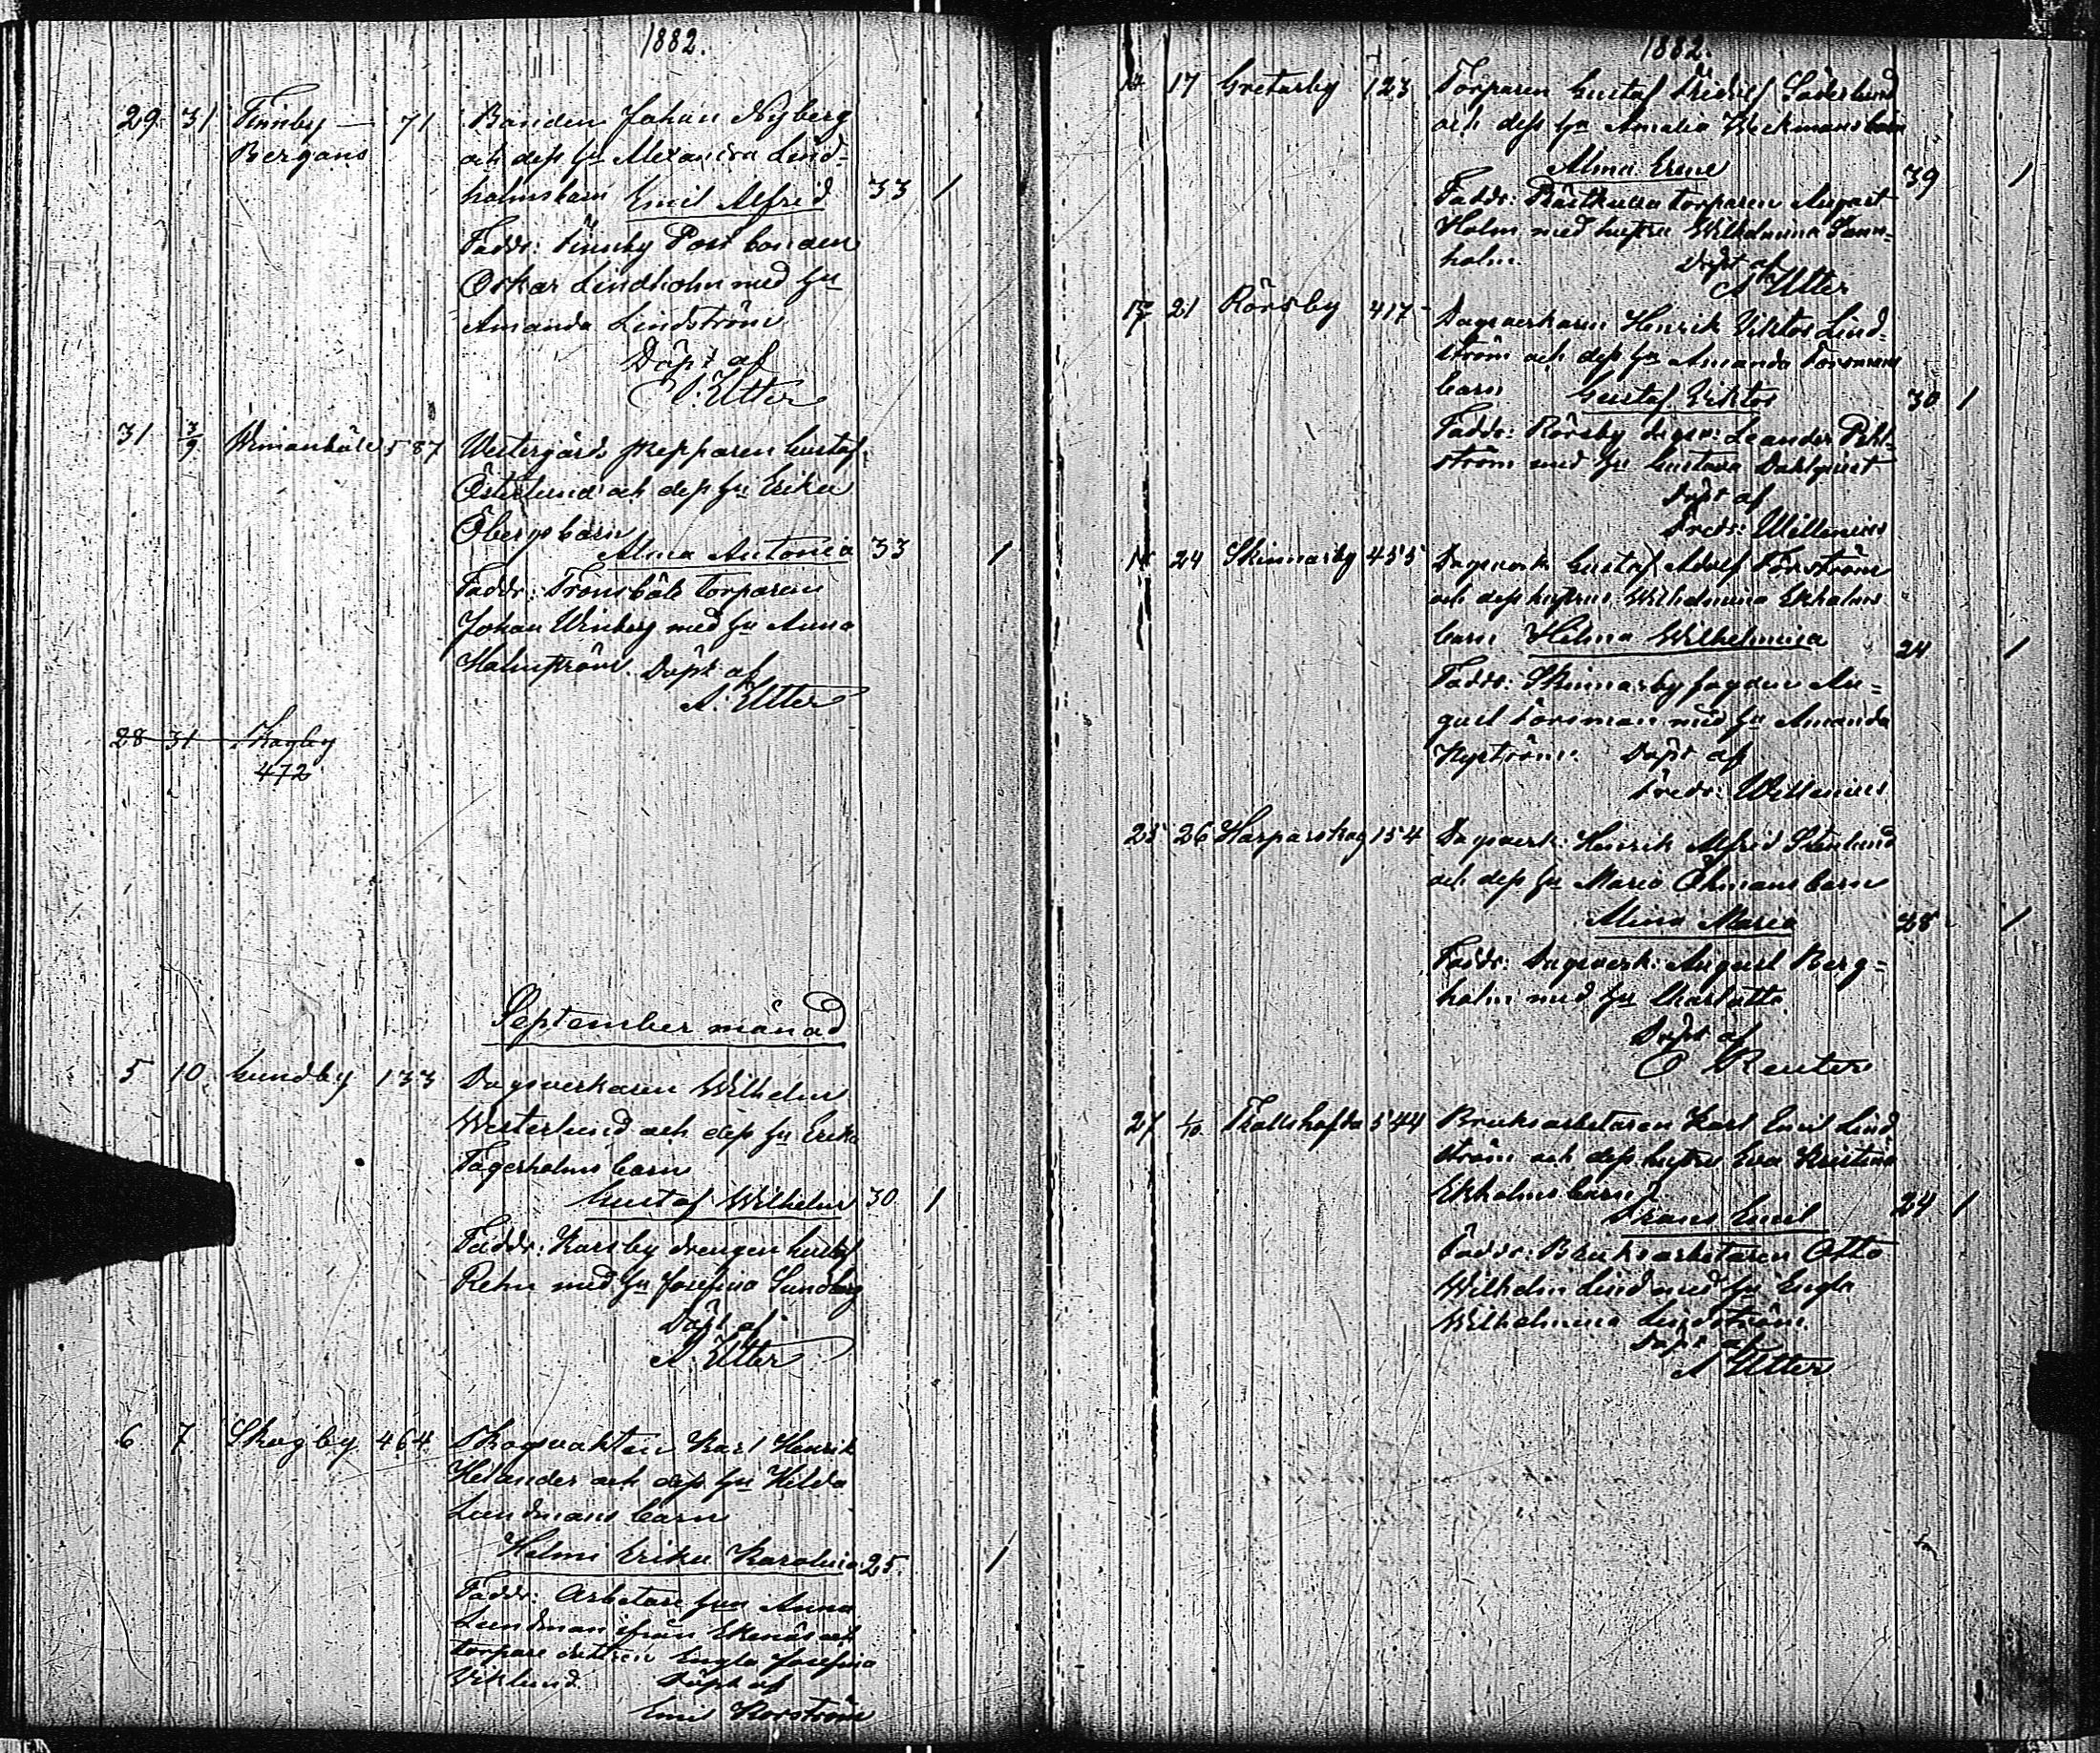 1882.
29 31 Finnby — 71 Bonden Johan Nyberg
Bergans och dess hu Alexandra Lind-
holms barn Emil Alfrid 33 1
Faddr: Finnby Post bonden
Oskar Lindholm med hu
Amanda Lindström
Döpt af
A. Utter
31 3/9 587 Westergård skepparen Gustaf
Österlund och dess hu Erika
Öbergs barn
Alma Antonia 33 1
Faddr: Trönsböle torparen
Johan Winberg med hu Anna
Holmström. Döpt af
A. Utter
28 31 Skogby
472
September månad
5 10 Gundby 133 Dagsverkaren Wilhelm
Westerlund och dess hu Erika
Fagerholms barn
Gustaf Wilhelm 30 1
Faddr: Karsby drengen Gustaf
Rehn med hu Josefina Sundberg
Döpt af
A. Utter
6 7 Skogby 464 Skogsvakten Karl Henrik
Helander och dess hu Hilda
Lundmans barn
Helmi Erika Karolina 25 1
Faddr: Arbetare hun Anna
Lundman ifrån Ekenäs och
torpare dottren Engla Josefina
Viklund. Döpt af
Emil Norström
1882.
14 17 Gretarby 123 Torparen Gustaf Fridolf Söderlund
och dess hu Amalia Weckmans barn
Alma Irene 39 1
Faddr: torparen August
Holm med hustru Wilhelmina
holm. Döpt af
A Utter
17 21 Rörsby 417 Dagsverkaren Henrik Viktor Lind-
ström och dess hu Amanda Forsmans
barn Gustaf Viktor 30 1
Faddr: Rörsby dagsv: Leander
ström med hu Gustava Dahlqvist
Döpt af
Fredr: Willenius
24 Skinnarby 455 Dagsverk. Gustaf Adolf Forsström
och dess hustrus Wilhelmina Ekholms
barn Helma Wilhelmina 24 1
Faddr: Skinnarby fogden Au-
gust Forsman med hu Amanda
Nyström. Döpt af
Fredr: Willenius
25 26 Harparskog 154 Dagsverk: Henrik Alfrid Stenlund
och dess hu Maria Öhmans barn
Alina Maria 28 1
Faddr: Dagsverk: August Berg-
holm med hu Charlotta
Döpt af
O Reuter
27 1/10 Trollshofda 544 Bruksarbetaren Karl Emil Lind
ström och dess hustru Eva Kristina
Ekholms barn
Frans Emil 24 1
Faddr: Bruksarbetaren Otto
Wilhelm Lind med hu Engla
Wilhelmina Lindström.
Döpt af
A Utter